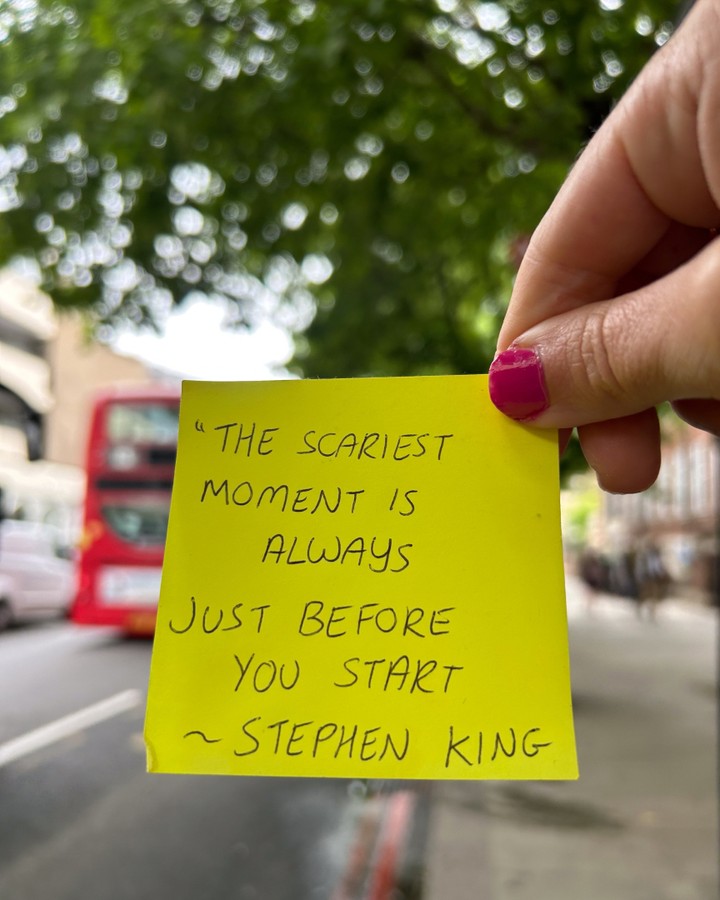 “THE SCARIEST
MOMENT IS
ALWAYS
JUST BEFORE
YOU START
~ STEPHEN KING